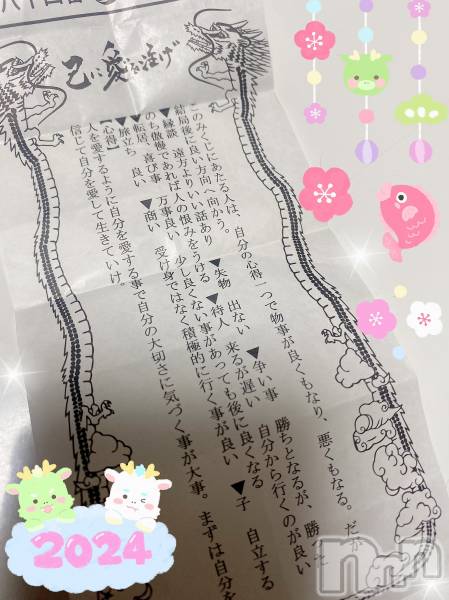 八十四番
己に愛を注げ
このみくじにあたる人は、自分の心得一つで物事が良くもなり、悪くもなる。だが
結局後に良い方向へ向かう。
▼縁談 遠方よりいい話あり ▼失物 出ない ▼争い事 勝ちとなるが、勝って
のち傲慢であれば人の恨みをうける ▼待人 来るが遅い 自分から行くのが良い
▼転居、喜び事 万事良い 少し良くない事があっても後に良くなる ▼子 自立する
▼旅立ち 良い ▼商い 受け身ではなく積極的に行く事が良い
【心得】
人を愛するように自分を愛する事で自分の大切さに気づく事が大事。まずは自分を
信じて自分を愛して生きていけ。
2024